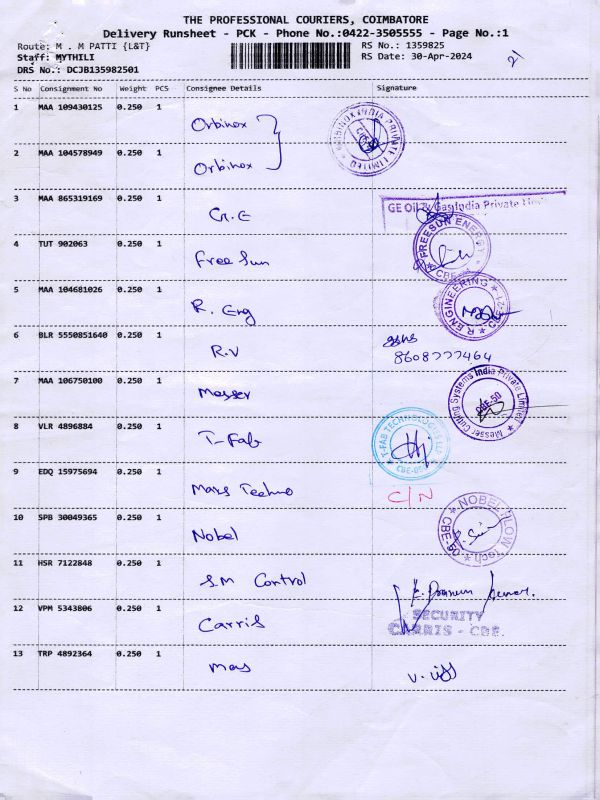 THE PROFESSIONAL COURIERS, COIMBATORE
Delivery Runsheet - PCK - Phone No.:0422-3505555 - Page No.:1
Route: M . M PATTI {L&T} RS No.: 1359825
Staff: MYTHILI RS Date: 30-Apr-2024
DRS No.: DCJB135982501
S No Consignment No Weight PCS Consignee Details Signature
1 MAA 109430125 0.250 1 Orbinox
ORBINOX INDIA PRIVATE LIMITED
2 MAA 104578949 0.250 1 Orbinox
3 MAA 865319169 0.250 1 G.E
GE Oil & Gas India Private Limi
4 TUT 902063 0.250 1 Free Sun
FREESUN ENERGY CBE
5 MAA 104681026 0.250 1 R. Eng
R ENGINEERING
6 BLR 5550851640 0.250 1 R.V
8608777464
7 MAA 106750100 0.250 1 Messer
Messer Cutting Systems India Private Limited CBE-50
8 VLR 4896884 0.250 1 T-Fab
T-FAB TECHNOLOGIES LLP
9 EDQ 15975694 0.250 1 Mars Techno C/N
10 SPB 30049365 0.250 1 Nobel
NOBEL FLOW Tech
11 HSR 7122848 0.250 1 S.M Control
12 VPM 5343806 0.250 1 Carris
SECURITY
CARRIS - CBE.
13 TRP 4892364 0.250 1 Mas